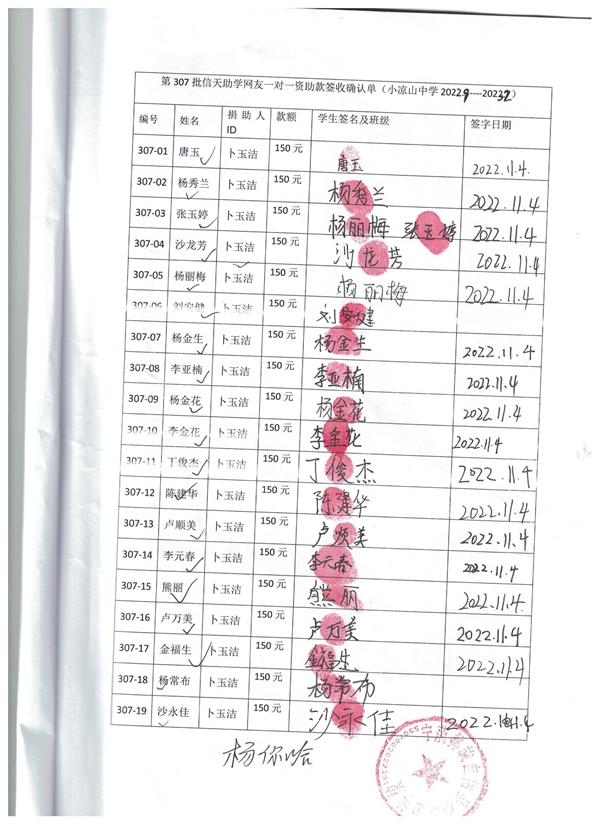 第 307 批信天助学网友一对一资助款签收确认单（小凉山中学 2022.9----2023.2）
编号 姓名 捐助人ID 款额 学生签名及班级 签字日期
307-01 唐玉 卜玉洁 150 元 唐玉 2022.11.4.
307-02 杨秀兰 卜玉洁 150 元 杨秀兰 2022.11.4
307-03 张玉婷 卜玉洁 150 元 杨丽梅 张玉婷 2022.11.4
307-04 沙龙芳 卜玉洁 150 元 沙龙芳 2022.11.4
307-05 杨丽梅 卜玉洁 150 元 杨丽梅 2022.11.4
307-06 刘安健 卜玉洁 150 元 刘安健
307-07 杨金生 卜玉洁 150 元 杨金生 2022.11.4
307-08 李亚楠 卜玉洁 150 元 李亚楠 2022.11.4
307-09 杨金花 卜玉洁 150 元 杨金花 2022.11.4
307-10 李金花 卜玉洁 150 元 李金花 2022.11.4
307-11 丁俊杰 卜玉洁 150 元 丁俊杰 2022.11.4
307-12 陈建华 卜玉洁 150 元 陈建华 2022.11.4
307-13 卢顺美 卜玉洁 150 元 卢顺美 2022.11.4
307-14 李元春 卜玉洁 150 元 李元春 2022.11.4
307-15 熊丽 卜玉洁 150 元 熊丽 2022.11.4.
307-16 卢万美 卜玉洁 150 元 卢万美 2022.11.4
307-17 金福生 卜玉洁 150 元 金福生 2022.11.4
307-18 杨常布 卜玉洁 150 元 杨常布
307-19 沙永佳 卜玉洁 150 元 沙永佳 2022.11.4
杨你哈